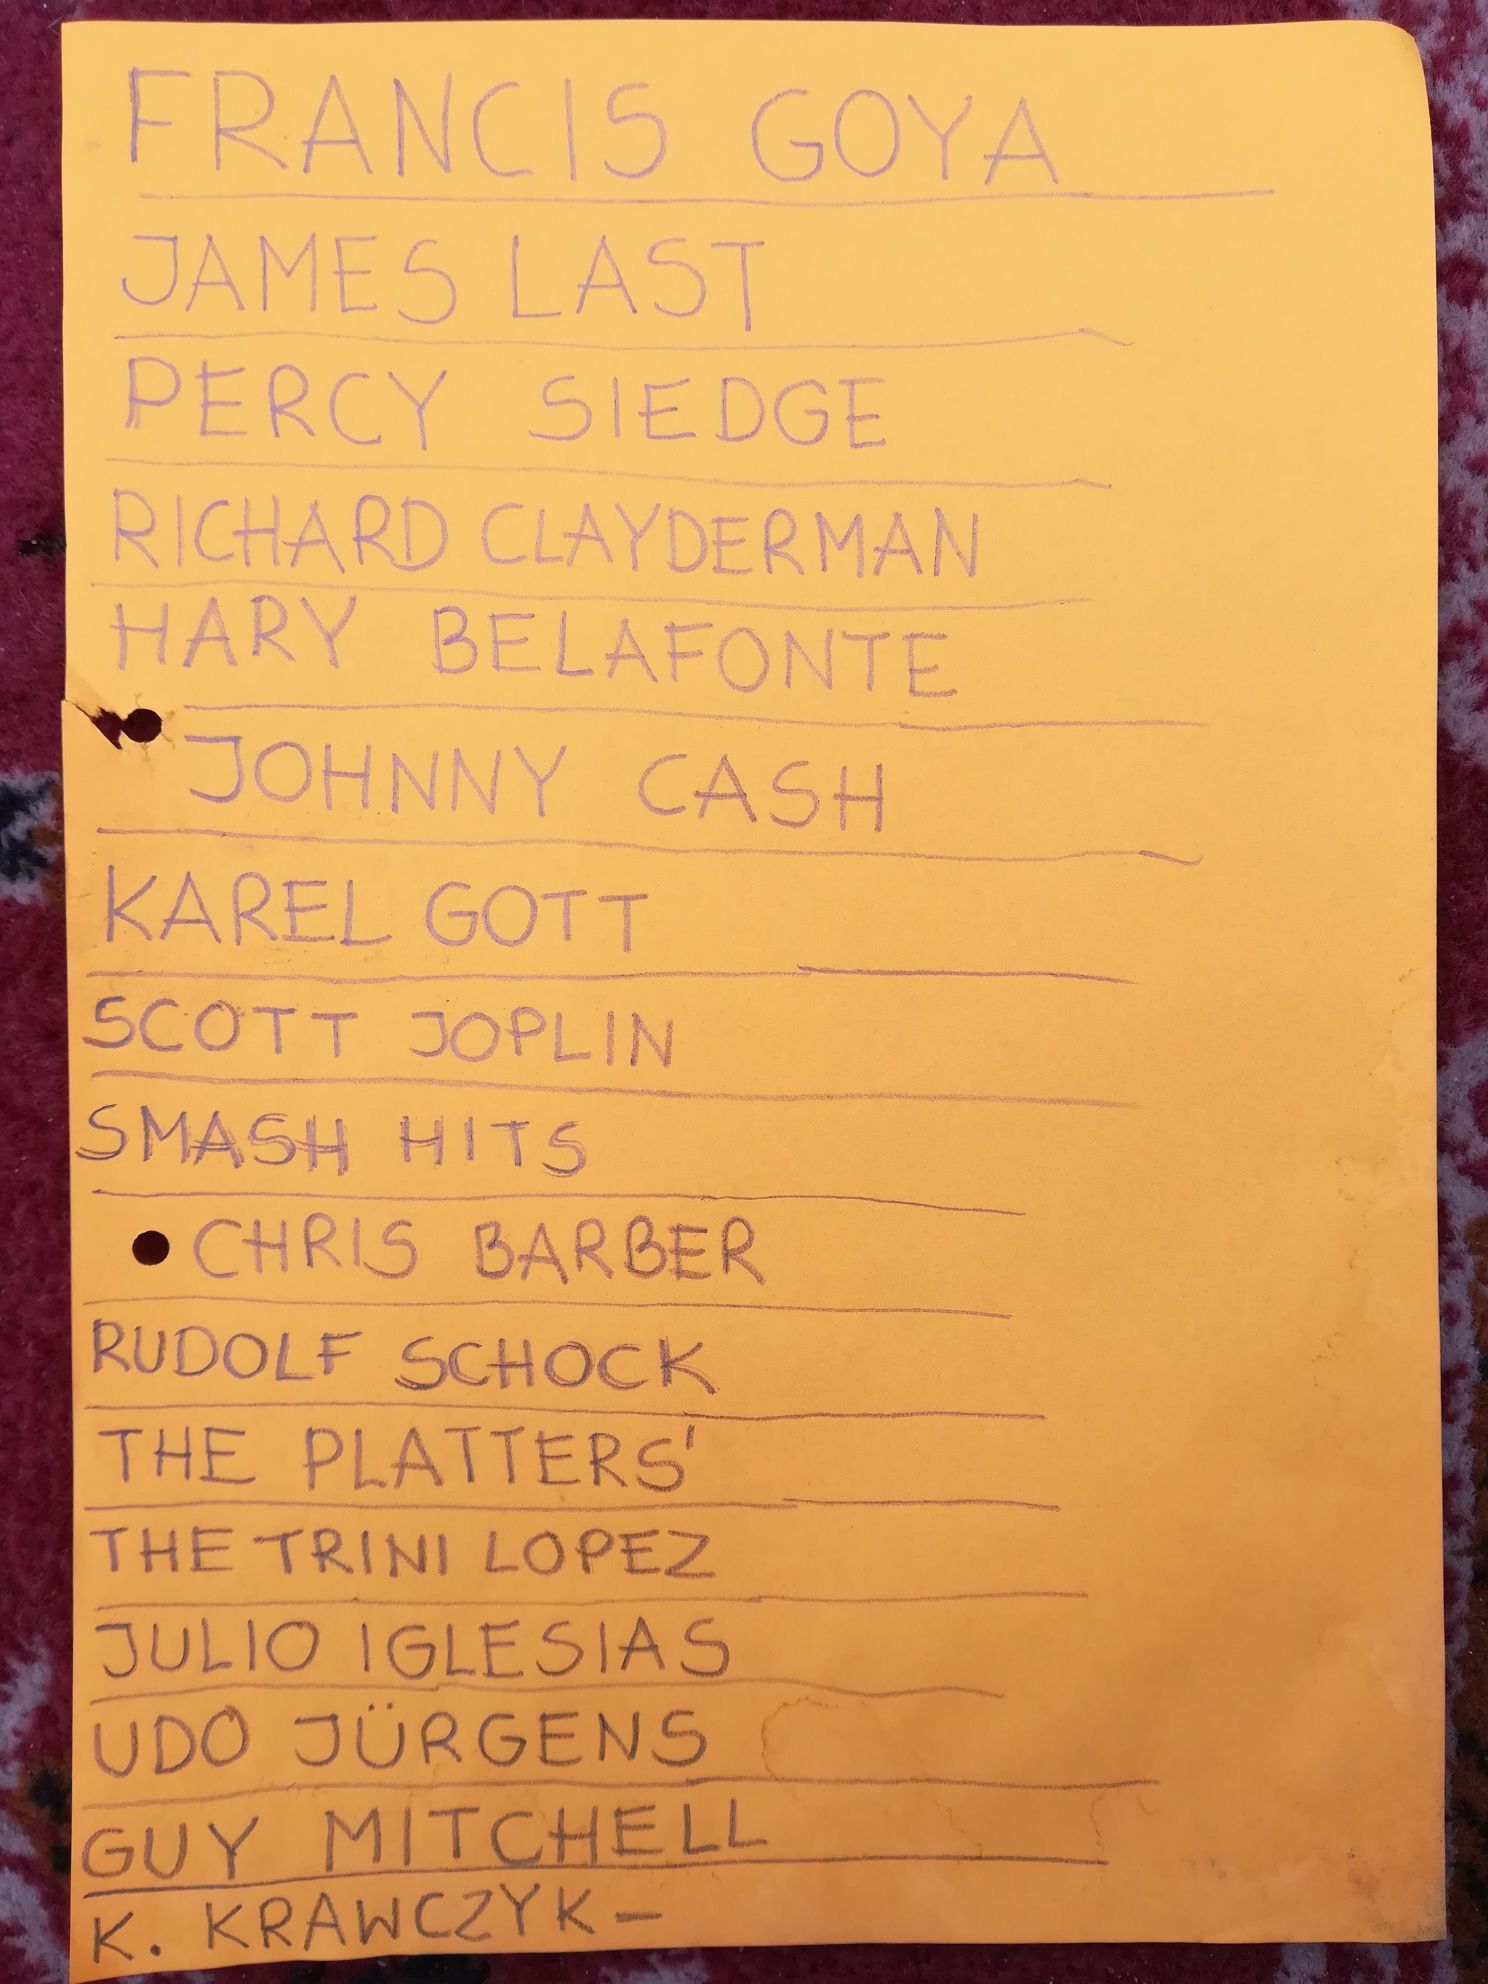 FRANCIS GOYA
JAMES LAST
PERCY SIEDGE
RICHARD CLAYDERMAN
HARY BELAFONTE
JOHNNY CASH
KAREL GOTT
SCOTT JOPLIN
SMASH HITS
CHRIS BARBER
RUDOLF SCHOCK
THE PLATTERS'
THE TRINI LOPEZ
JULIO IGLESIAS
UDO JÜRGENS
GUY MITCHELL
K. KRAWCZYK –